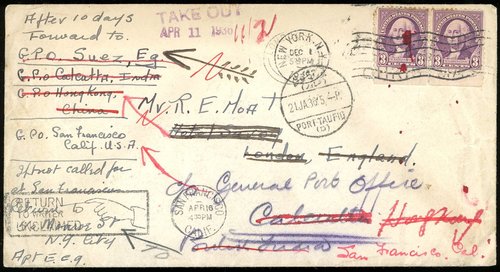 After 10 days
Forward to.
G.P.O Suez, Eg
G.P.O Calcutta, India
G.P.O Hongkong.
China
G.PO. San Francisco
Calif. U.S.A.
If not called for
at San Francisco
Return to
Monroe St
N.Y. City
Apt E.C.9.
TAKE OUT
APR 11 1936
11/2
NEW YORK, N.Y.
DEC
PM
1935
3 3
21 JA 36
PORT TAUFIQ
Mr. R.E. Moatt
London, England.
c/o General Post Office
Calcutta Hong Kong
India San Francisco. Cal.
SAN FRANCISCO
APR 10
4 30 PM
CALIF.
RETURN
TO WRITER
UNCLAIMED